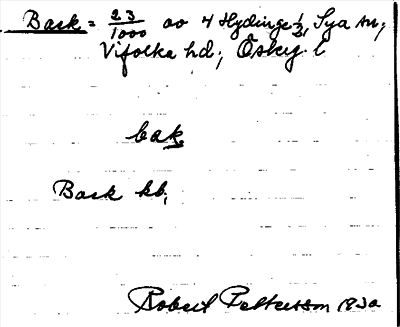 Bask = 23/1000 av 4 Hydinge 1/2, Sya sn;
Vifolka hd; Östg. l
bak
Bask kb,
Robert Petterson 1930